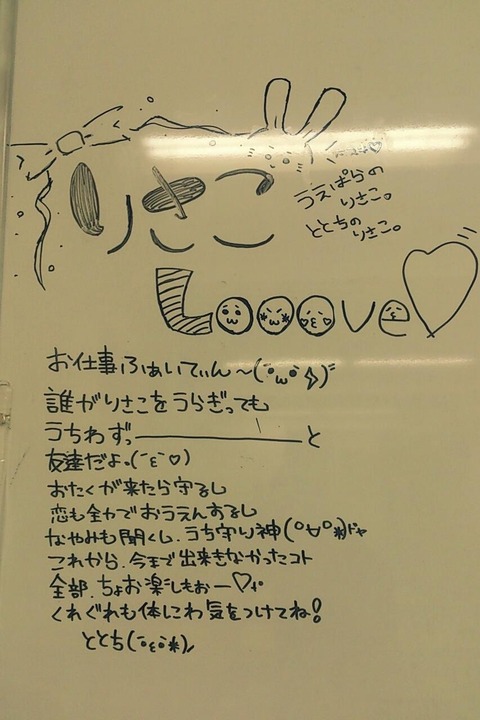 りさこ
うえぱらの
りさこ。
ととちの
りさこ。
Looove
お仕事ふぁいてぃん〜(´°ω°`)
誰がりさこをうらぎっても
うちわずっ――――――と
友達だよ。(´ε`♡)
おたくが来たら守るし
恋も全力でおうえんするし
なやみも聞くし、うち守り神(°∀°*)ドヤ
これから、今まで出来なかったコト
全部、ちょお楽しもおー♡
くれぐれも体にわ気をつけてね!
ととち(´°ε°`*)